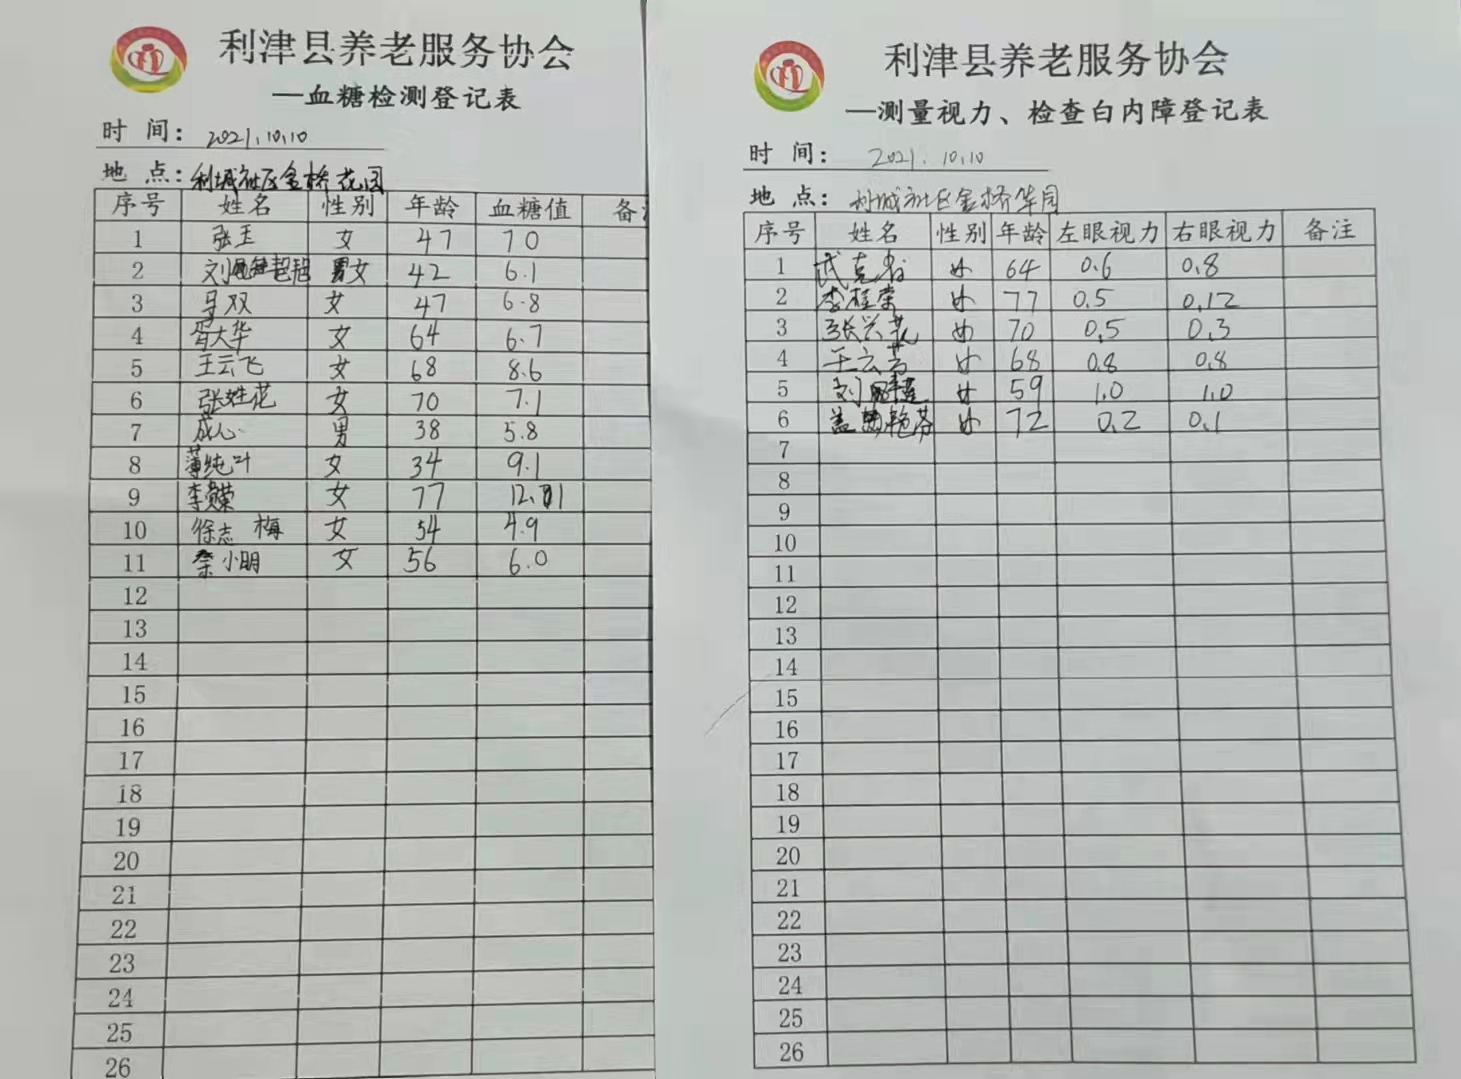 利津县养老服务协会
—血糖检测登记表
时 间： 2021.10.10
地 点： 利城社区金桥花园
序号 姓名 性别 年龄 血糖值 备
1 张玉 女 47 7.0
2 刘 超 女 42 6.1
3 马双 女 47 6.8
4 胥大华 女 64 6.7
5 王云飞 女 68 8.6
6 张姓花 女 70 7.1
7 成心 男 38 5.8
8 薄纯叶 女 34 9.1
9 李 荣 女 77 12.1
10 徐志梅 女 54 4.9
11 秦小明 女 56 6.0
12
13
14
15
16
17
18
19
20
21
22
23
24
25
26
利津县养老服务协会
—测量视力、检查白内障登记表
时 间： 2021.10.10
地 点： 利城社区金桥华园
序号 姓名 性别 年龄 左眼视力 右眼视力 备注
1 武克 女 64 0.6 0.8
2 李桂荣 女 77 0.5 0.12
3 张兴花 女 70 0.5 0.3
4 王云芳 女 68 0.8 0.8
5 刘 女 59 1.0 1.0
6 盖 艳芬 女 72 0.2 0.1
7
8
9
10
11
12
13
14
15
16
17
18
19
20
21
22
23
24
25
26